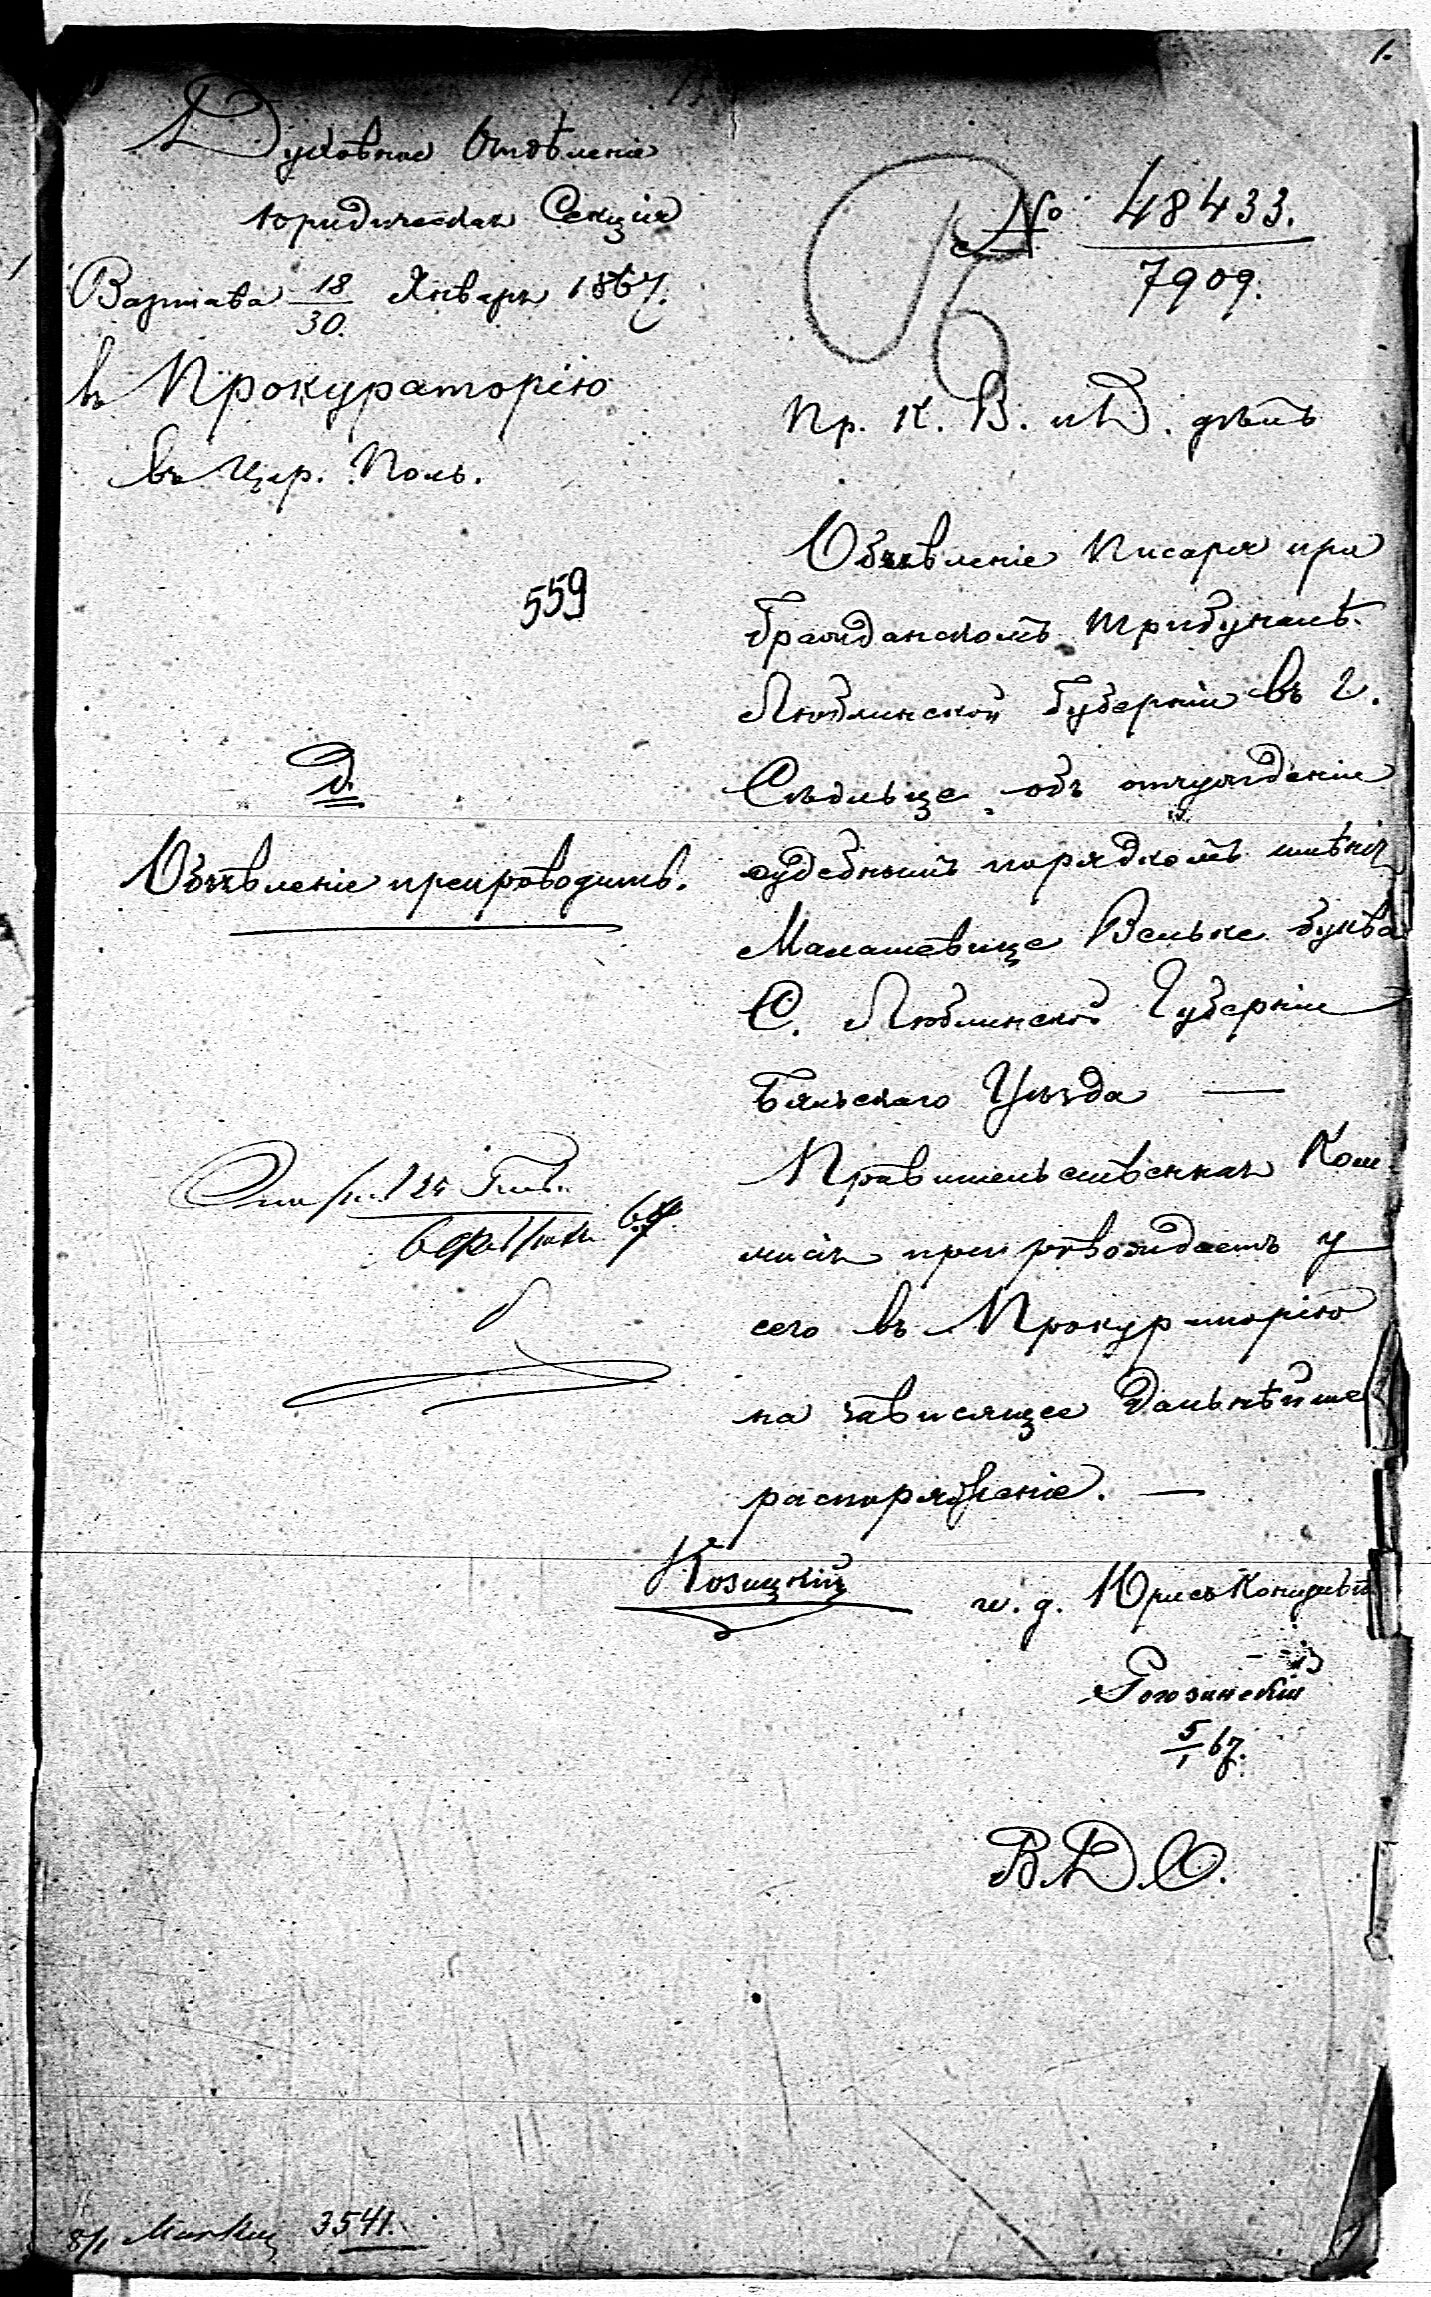 1.
Духовное Отдѣленіе
Юридическая Секція
Варшава 18/30. Января 1867.
въ Прокураторію
въ Цар. Поль.
№ 48433.
7909.
Пр. К. В. и Д. дѣлъ
559
Д.
Объявленіе препроводить.
Объявленіе Писаря при
Гражданскомъ Трибуналѣ
Люблинской Губерніи въ г.
Сѣдльце объ отчужденіи
судебнымъ порядкомъ имѣнія
Малашевице Вельке буква
С. Люблинской Губерніи
Бяльскаго Уѣзда —
Правительственная Ком
мисія препровождаетъ у
сего въ Прокураторію
на зависящее дальнѣйшее
распоряженіе. —
Козицкій
и. д. Юрисъ Консульта
Рогозинскій
5/1 67.
В. Д. О.
8/1 3541.